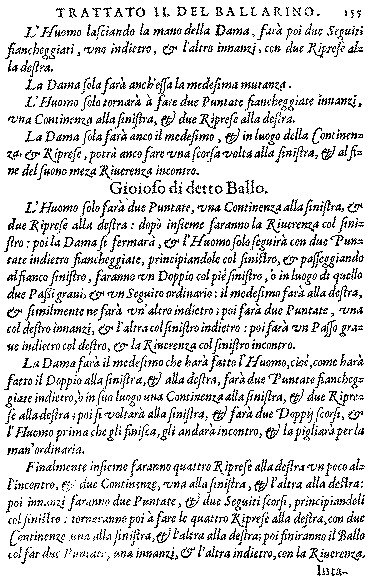 TRATTATO II. DEL BALLARINO. 155
L'Huomo lasciando la mano della Dama, farà poi due Seguiti
fiancheggiati, vno indietro, & l'altro innanzi, con due Riprese alla
la destra.
La Dama sola farà anch'essa la medesima mutanza.
L'Huomo solo tornarà à fare due Puntate fiancheggiate innanzi,
vna Continenza alla sinistra, & due Riprese alla destra.
La Dama sola farà anco il medesimo, & in luogo della Continen-
za, & Riprese, potrà anco fare vna scorsa volta alla sinistra, & al fi-
ne del suono meza Riuerenza incontro.
Gioioso di detto Ballo.
L'Huomo solo farà due Puntate, vna Continenza alla sinistra, &
due Riprese alla destra: dopò insieme faranno la Riuerenza col sini-
stro: poi la Dama si fermarà, & l'Huomo solo seguirà con due Pun-
tate indietro fiancheggiate, principiandole col sinistro, & passeggiando
al fianco sinistro, faranno vn Doppio col piè sinistro, ò in luogo di quello
due Passi graui, & vn Seguito ordinario: il medesimo farà alla destra,
& similmente ne farà vn'altro indietro; poi farà due Puntate, vna
col destro innanzi, & l'altra col sinistro indietro: poi farà vn Passo gra-
ue indietro col destro, & la Riuerenza col sinistro incontro.
La Dama farà il medesimo che harà fatto l'Huomo, cioè, come harà
fatto il Doppio alla sinistra, & alla destra, farà due Puntate fiancheg-
giate indietro, ò in suo luogo vna Continenza alla sinistra, & due Ripre-
se alla destra; poi si voltarà alla sinistra, & farà due Doppij scorsi, &
l'Huomo prima che gli finisca, gli andarà incontro, & la pigliarà per la
man'ordinaria.
Finalmente insieme faranno quattro Riprese alla destra vn poco al-
l'incontro, & due Continenze, vna alla sinistra, & l'altra alla destra:
poi innanzi faranno due Puntate, & due Seguiti scorsi, principiandoli
col sinistro: tornaranno poi à fare le quattro Riprese alla destra, con due
Continenze vna alla sinistra, & l'altra alla destra; poi finiranno il Ballo
col far due Puntate, vna innanzi, & l'altra indietro, con la Riuerenza.
Inta-